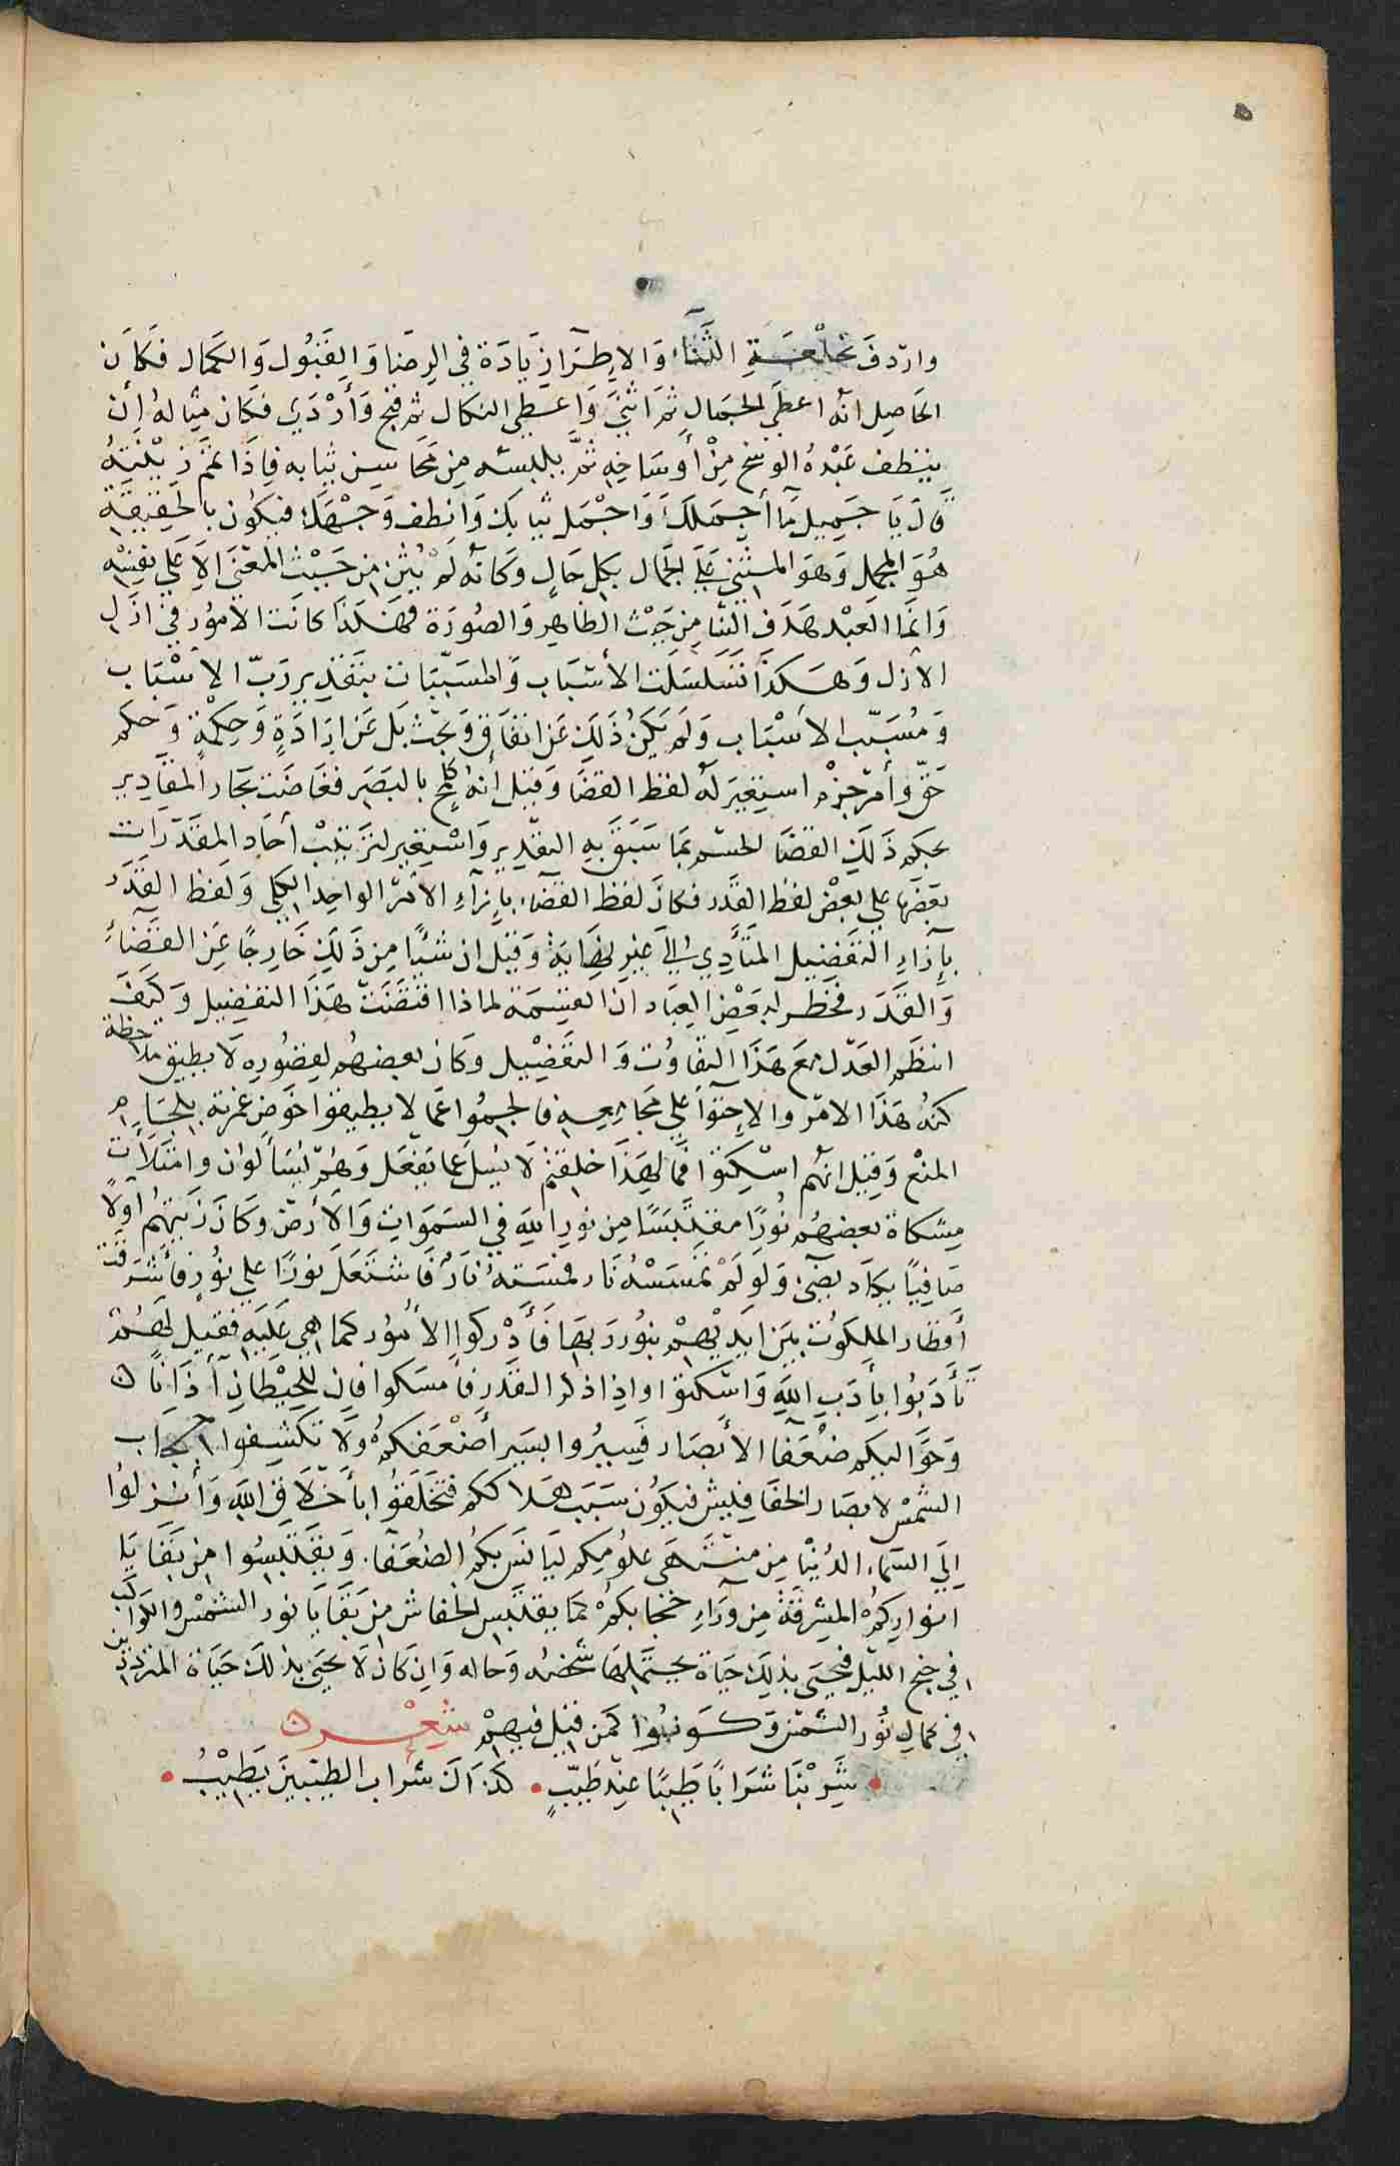 واردف بخلعة الثناء والاطراء زيادة في الرضا والقبول والكمال فكان
الحاصل انه اعطى الجمال ثم اثنى واعطى النكال ثم قبح وأردى فكان مثاله أن
ينظف عبده الوسخ من أوساخه ثم يلبسه من محاسن ثيابه فاذا تمم زينته
قال يا جميل ما أجملك وأجمل ثيابك وانظف وجهك فيكون بالحقيقة
هو المجمل وهو المثنى على الجمال بكل حال وكأنه لم يثن من حيث المعنى الا على نفسه
وانما العبد هدف الثنا من حيث الظاهر والصورة فهكذا كانت الأمور في ازل
الآزل وهكذا تتسلسلت الأسباب والمسببات بتقدير رب الأسباب
ومسبب الأسباب ولم يكن ذلك عن اتفاق وبحث بل عن ارادة وحكمة وحكم
حق وأمر جزم استعير له لفظ القضا وقيل أنه كلمح بالبصر ففاضت بحار المقادير
بحكم ذلك القضا الحتم بما سبق به التقدير واستعير لترتيب أحاد المقدرات
بعضها على بعض لفظ القدر فكان لفظ القضاء بإزاء الأمر الواحد الكلي ولفظ القدر
بإزاء التفصيل المتأدي الى غير نهاية وقيل ان شيئا من ذلك خارجا عن القضاء
والقدر فخطر لبعض العباد ان القسمة لماذا اقتضت هذا التفضيل وكيف
انتظم العدل مع هذا التفاوت والتفضيل وكان بعضهم لقصوره لا يطيق ملاحظة
كنه هذا الامر والاحتوا على مجامعه فالجموا عما لا يطيقوا خوض غمرته بلجام
المنع وقيل انهم اسكتوا فما لهذا خلقتم لا يسل عما يفعل وهم يسألون وامتلأت
مشكاة بعضهم نورا مقتبسا من نور الله في السموات والأرض وكان زيتهم اولا
صافيا يكاد يضيء ولو لم تمسسه نار فمسته نار فاشتعل نورا على نور فأشرقت
أقطار الملكوت بين ايديهم بنور ربها فأدركوا الأمور كما هي عليه فقيل لهم
تأدبوا بأدب الله واسكتوا واذا ذكر القدر فامسكوا فان للحيطان أذانا
وحواليكم ضعفا الأبصار فسيروا بسير أضعفكم ولا تكشفوا حجاب
الشمس لابصار الخفافيش فيكون سبب هلاككم فتخلقوا بأخلاق الله وأنزلوا
الى السماء الدنيا من منتهى علومكم ليأنس بكم الضعفا. ويقتبسوا من بقايا
انواركم المشرقة من وراء حجابكم كما يقتبس الخفاش من بقايا نور الشمس والكواكب
في جنح الليل فيحيى بذلك حياة يحتملها شخصه وحاله وان كان لا يحيى بذلك حياة المترددين
في كمال نور الشمس وكونوا كمن قيل فيهم شعر
شربنا شرابا طيبا عند طيب كذاك شراب الطيبين يطيب